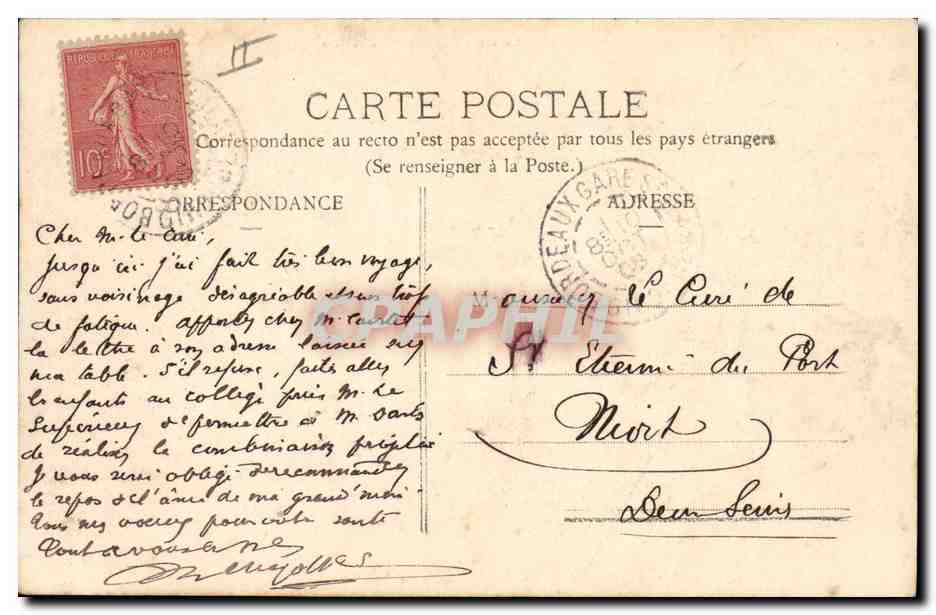 REPUBLIQUE FRANÇAISE
10c
CARTE POSTALE
Correspondance au recto n'est pas acceptée par tous les pays étrangers
(Se renseigner à la Poste.)
RRESPONDANCE
ADRESSE
BORDEAUX GARE ST
Cher M. le Curé,
Jusqu'ici j'ai fait très bon voyage,
sans voisinage désagréable et sans trop
de fatigue. chez M.
la lettre à son adresse laissée sur
ma table. S'il refuse, faites aller
les enfants au collège, priez M. le
Supérieur de permettre à M.
de réaliser la combinaison
Je vous serai obligé de recommander
le repos de l'âme de ma grand'mère
Tous mes voeux pour votre santé
Tout à vous
Monsieur le Curé de
St Etienne du Port
Niort
Deux Sèvres
CPAPHIL